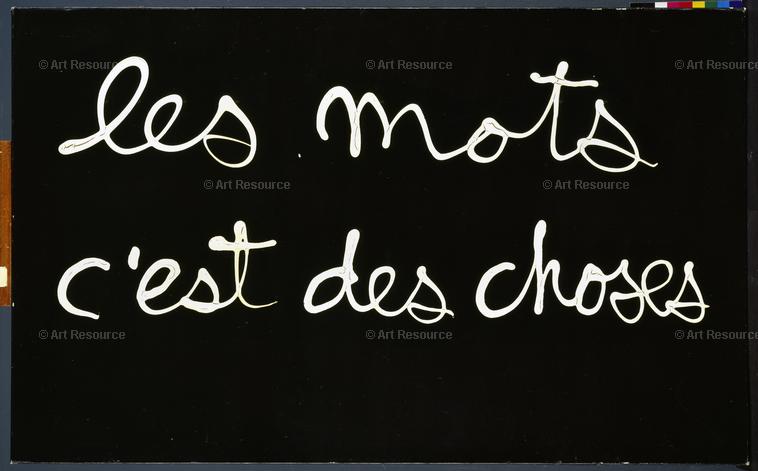 © Art Resource © Art Resource © Art Resource
les mots
© Art Resource © Art Resource
c'est des choses
© Art Resource © Art Resource © Art Resource